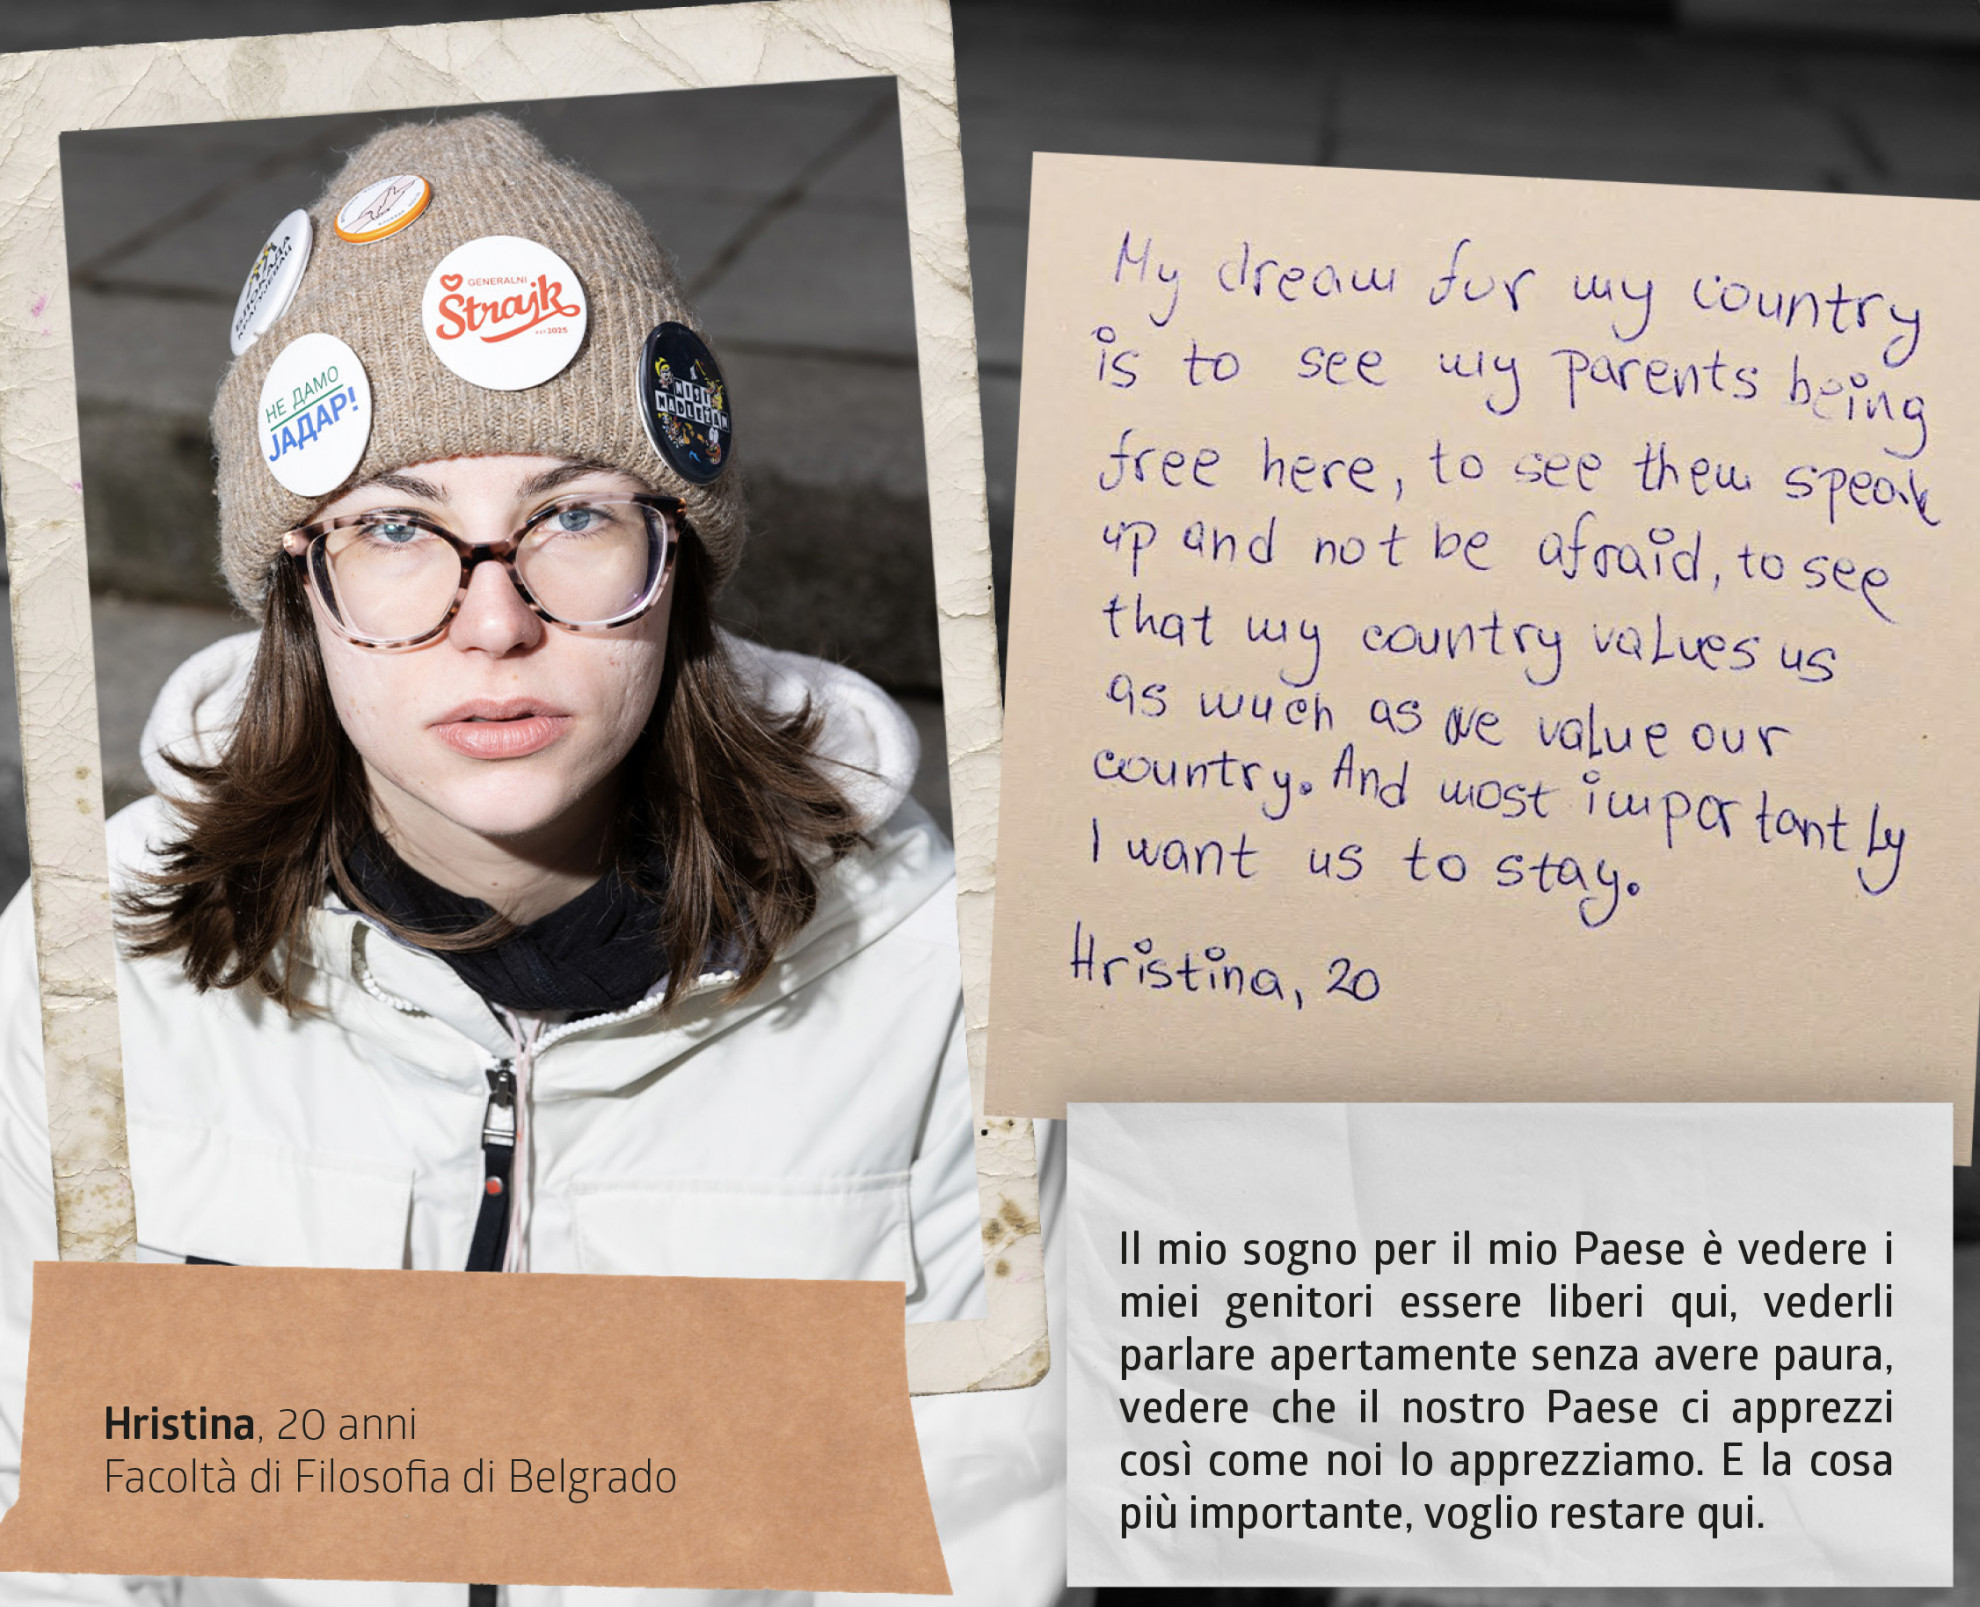 GENERALNI
Štrajk
EST 2025
НЕ ДАМО
ЈАДАР!
NISI
NADLEŽAN
My dream for my country
is to see my parents being
free here, to see them speak
up and not be afraid, to see
that my country values us
as much as we value our
country. And most importantly
I want us to stay.
Hristina, 20
Hristina, 20 anni
Facoltà di Filosofia di Belgrado
Il mio sogno per il mio Paese è vedere i
miei genitori essere liberi qui, vederli
parlare apertamente senza avere paura,
vedere che il nostro Paese ci apprezzi
così come noi lo apprezziamo. E la cosa
più importante, voglio restare qui.